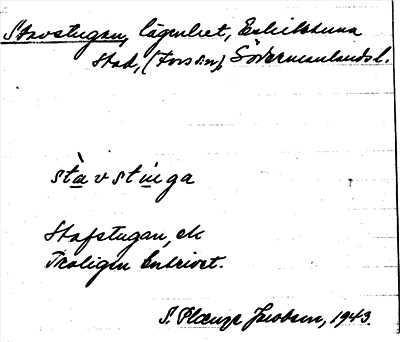 Stavstugan, lägenhet, Eskilstuna
stad, (Fors sn), Södermanlands l.
stàvstúga
Stafstugan, ek
Troligen
S. Plænge Jacobson, 1943.